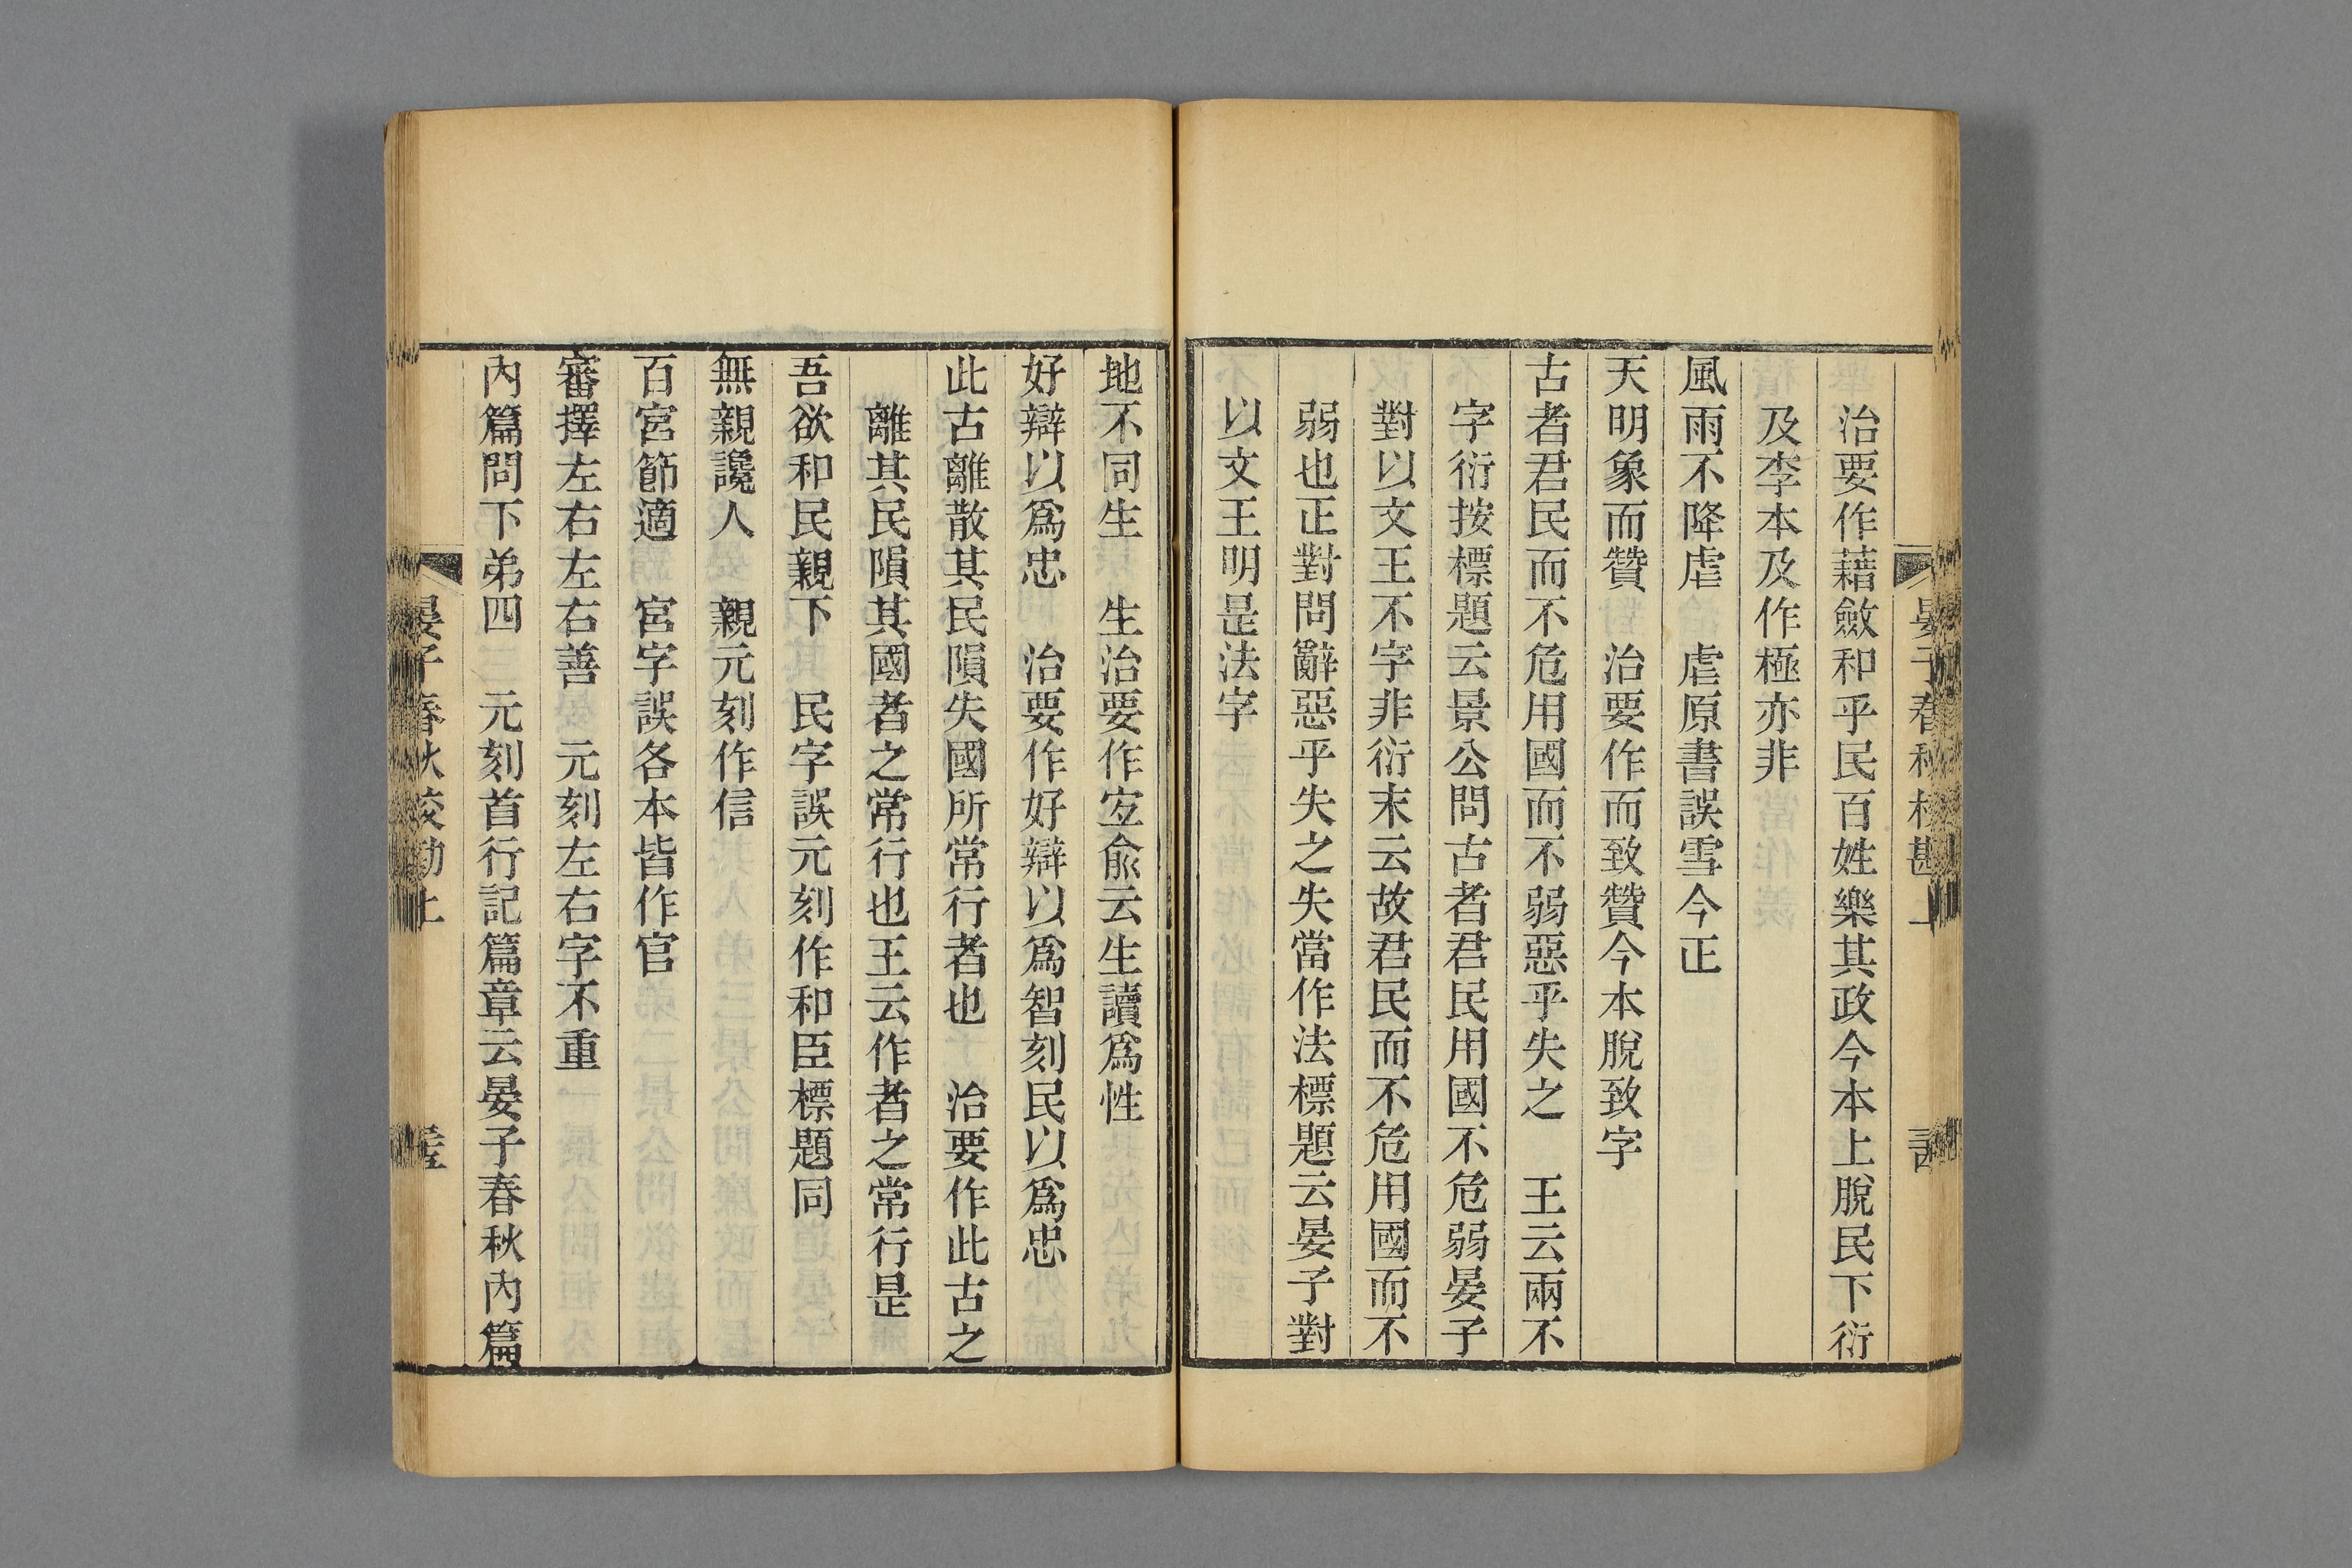 治要作藉斂和乎民百姓樂其政今本上脫民下衍
及李本及作極亦非
風雨不降虐　虐原書誤雪今正
天明象而贊　治要作而致贊今本脫致字
古者君民而不危用國而不弱惡乎失之　王云兩不
字衍按標題云景公問古者君民用國不危弱晏子
對以文王不字非衍末云故君民而不危用國而不
弱也正對問辭惡乎失之失當作法標題云晏子對
以文王明是法字
地不同生　生治要作宜俞云生讀爲性
好辯以爲忠　治要作好辯以爲智刻民以爲忠
此古離散其民隕失國所常行者也　治要作此古之
離其民隕其國者之常行也王云作者之常行是
吾欲和民親下　民字誤元刻作和臣標題同
無親讒人　親元刻作信
百宮節適　宮字誤各本皆作官
審擇左右左右善　元刻左右字不重
內篇問下弟四　元刻首行記篇章云晏子春秋內篇
晏子春秋校勘上